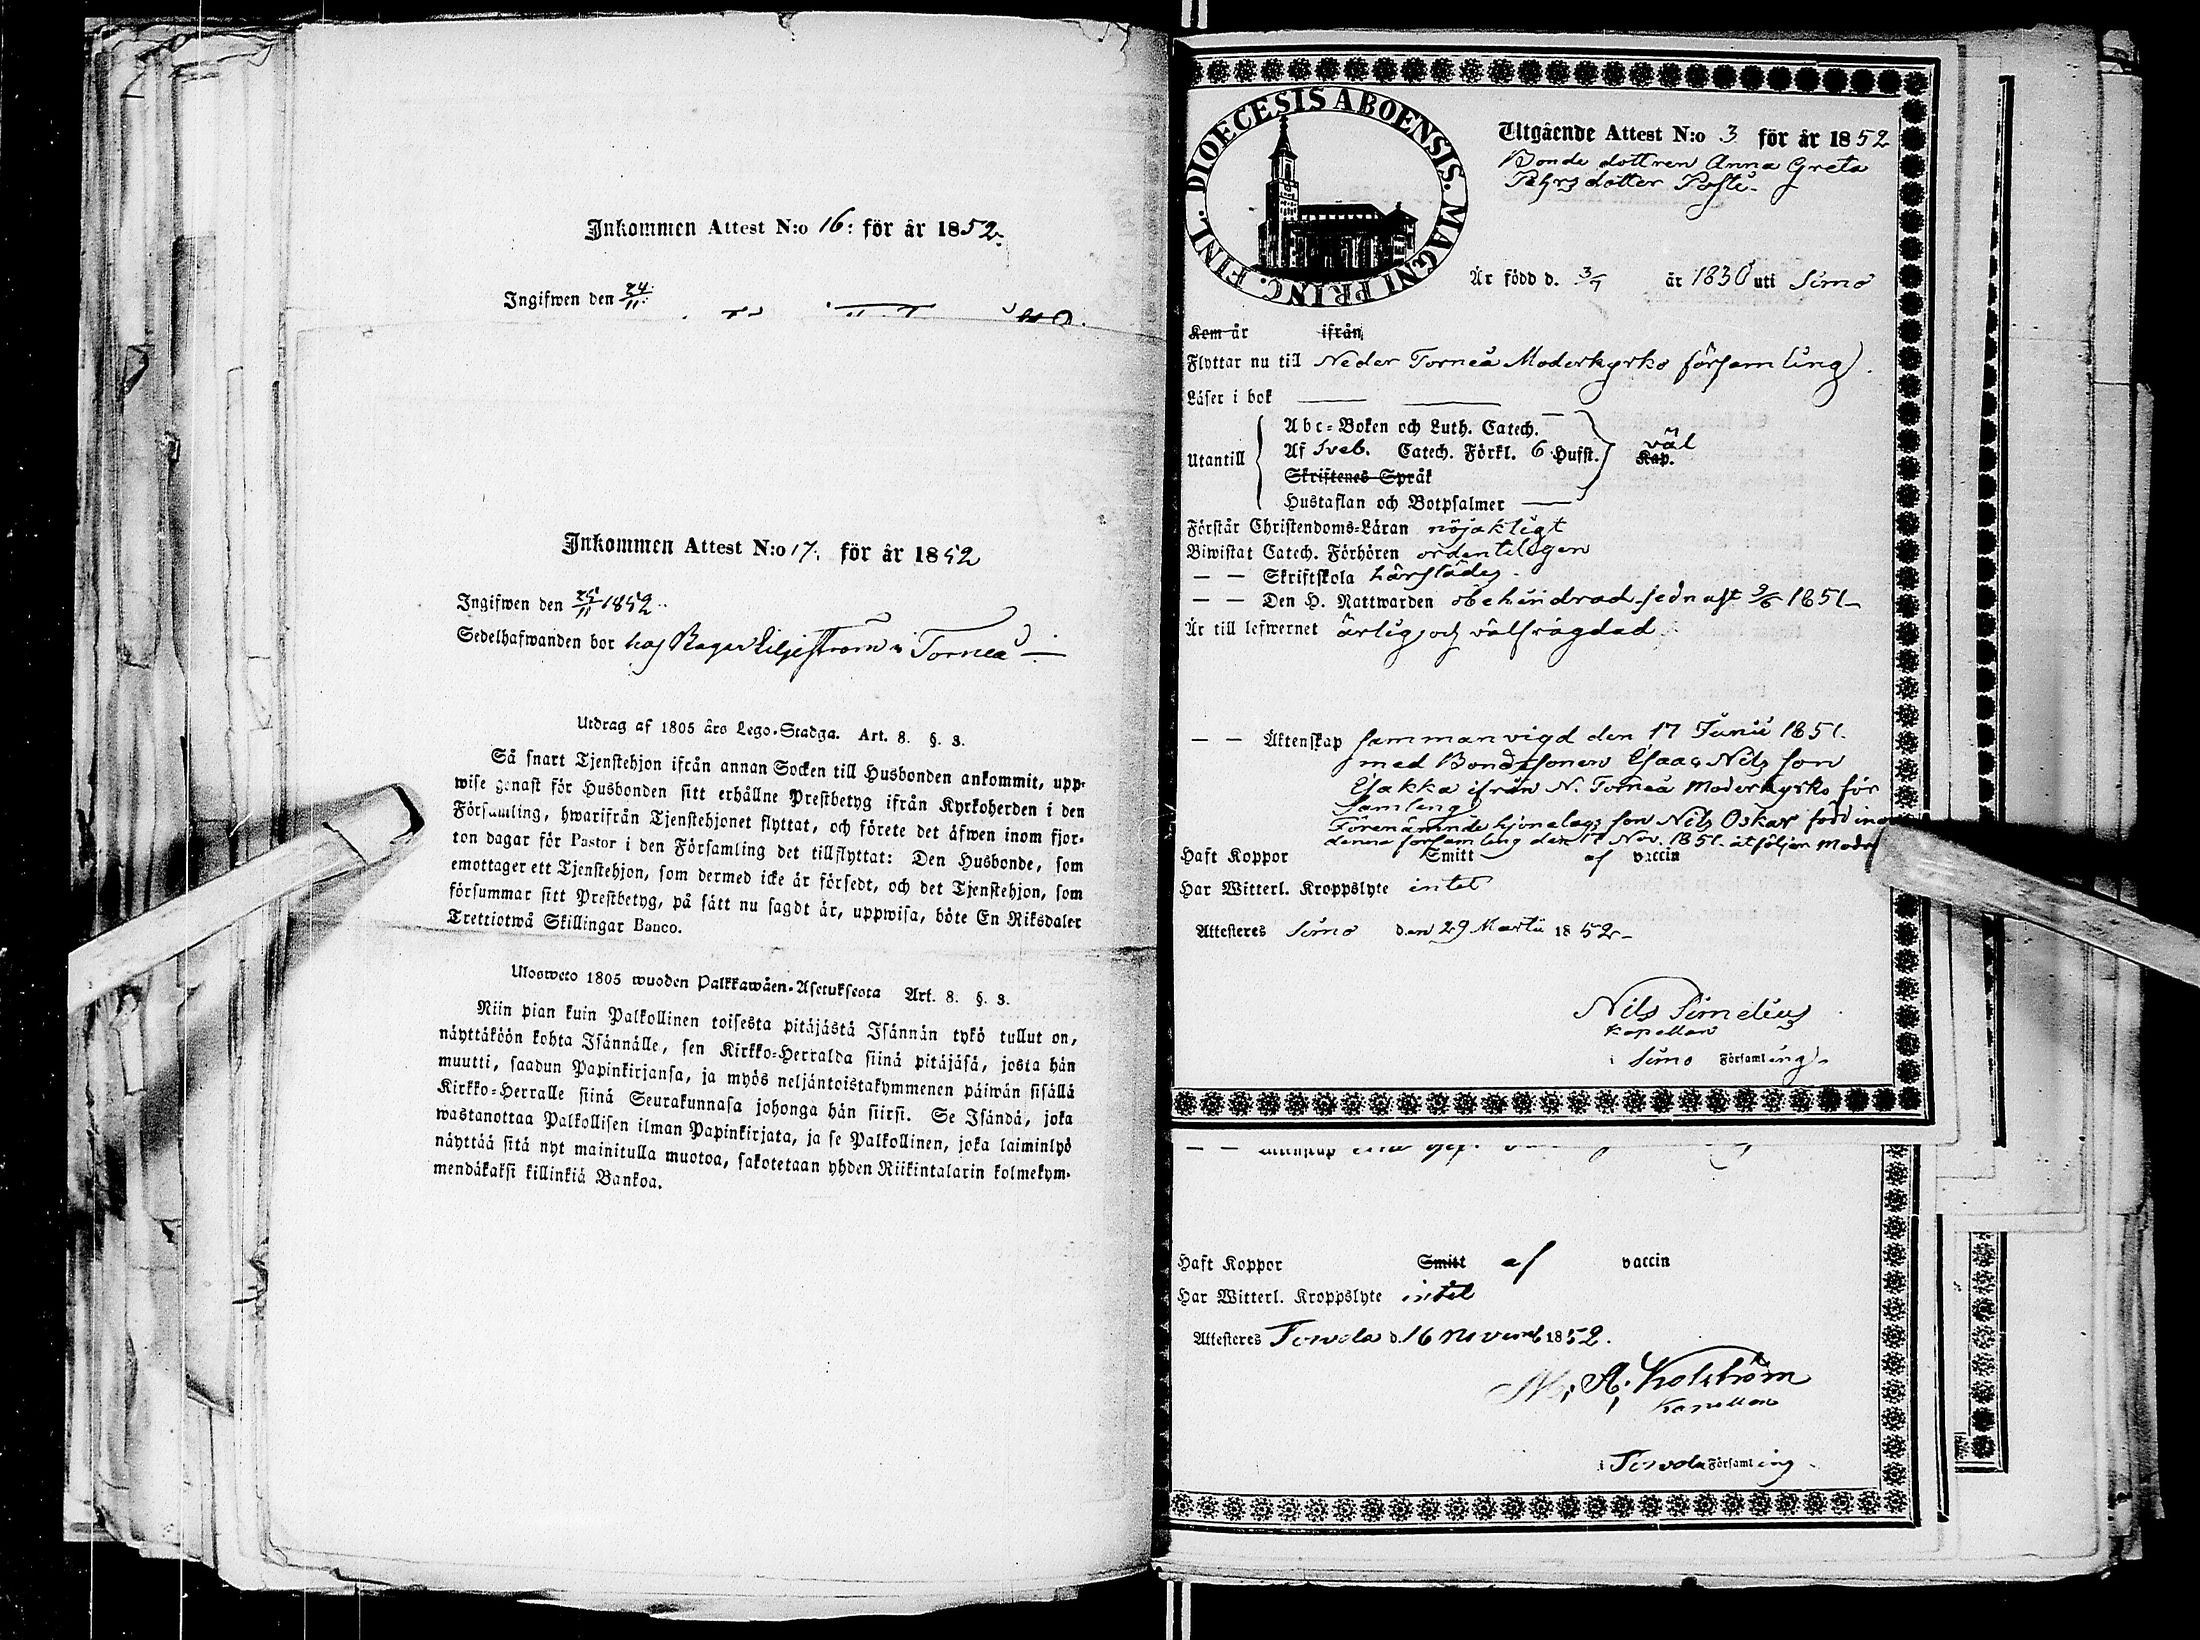 Inkommen Attest N:o 16: för år 1852.
Ingifwen den 24/11
Inkommen Attest N:o 17: för år 1852
Ingifwen den 25/11 1852.
Sedelhafwanden bor hos Bagar Liljeström i Torneå
Utdrag af 1805 års Lego-Stadga. Art. 8. §. 3.
Så snart Tjenstehjon ifrån annan Socken till Husbonden ankommit, upp-
wise genast för Husbonden sitt erhållne Prestbetyg ifrån Kyrkoherden i den
Församling, hwarifrån Tjenstehjonet flyttat, och förete det äfwen inom fjor-
ton dagar för Pastor i den Församling det tillflyttat: Den Husbonde, som
emottager ett Tjenstehjon, som dermed icke är försedt, och det Tjenstehjon, som
försummar sitt Prestbetyg, på sätt nu sagdt är, uppwisa, böte En Riksdaler
Trettiotwå Skillingar Banco.
Ulosweto 1805 wuoden Palkkawäen-Asetuksesta Art. 8. §. 3.
Niin pian kuin Palkollinen toisesta pitäjästä Isännän tykö tullut on,
näyttäköön kohta Isännälle, sen Kirkko-Herralda siinä pitäjäsä, josta hän
muutti, saadun Papinkirjansa, ja myös neljäntoistakymmenen päiwän sisällä
Kirkko-Herralle siinä Seurakunnasa johonga hän siirsi. Se Isändä, joka
wastanottaa Palkollisen ilman Papinkirjata, ja se Palkollinen, joka laiminlyö
näyttää sitä nyt mainitulla muotoa, sakotetaan yhden Riikintalarin kolmekym-
mendäkaksi killinkiä Bankoa.
DIOECESIS ABOENSIS. MAGNI PRINC. FINL.
Utgående Attest N:o 3 för år 1852
Bonde dottren Anna Greta
Pehrsdotter
Är född d. 3/7 år 1830 uti Simo
Kom år ifrån
Flyttar nu till Neder Torneå Moderkyrko församling.
Läser i bok
Abc-Boken och Luth. Catech.
Utantill Af Sveb. Catech. Förkl. 6 Hufst. väl Kap.
Skriftenes Språk
Hustaflan och Botpsalmer
Förstår Christendoms-Läran nöjaktigt
Biwistat Catech. Förhören ordenteligen
— — Skriftskola härstädes
— — Den H. Nattwarden obehindrad sednast 9/6 1851
Är till lefwernet ärlig och välfrägdad
— — Äktenskap sammanvigd den 17 Junii 1851.
med Bondesonen Isaac Nils son
ifrån N. Torneå Moderkyrko för
samling
Förenämnde hjonelags son Nils Oskar född inom
denna församling den 17 Nov. 1851. åtföljer Modr
Haft Koppor Smitt af vaccin
Har Witterl. Kroppslyte intet
Attesteres Simo den 29 Martii 1852
Nils Simelius
Kapellan
i Simo Församling
Haft Koppor Smitt af vaccin
Har Witterl. Kroppslyte intet
Attesteres Terwola d. 16 Novemb 1852.
M. A. Holström
Kapellan
i Terwola Församling